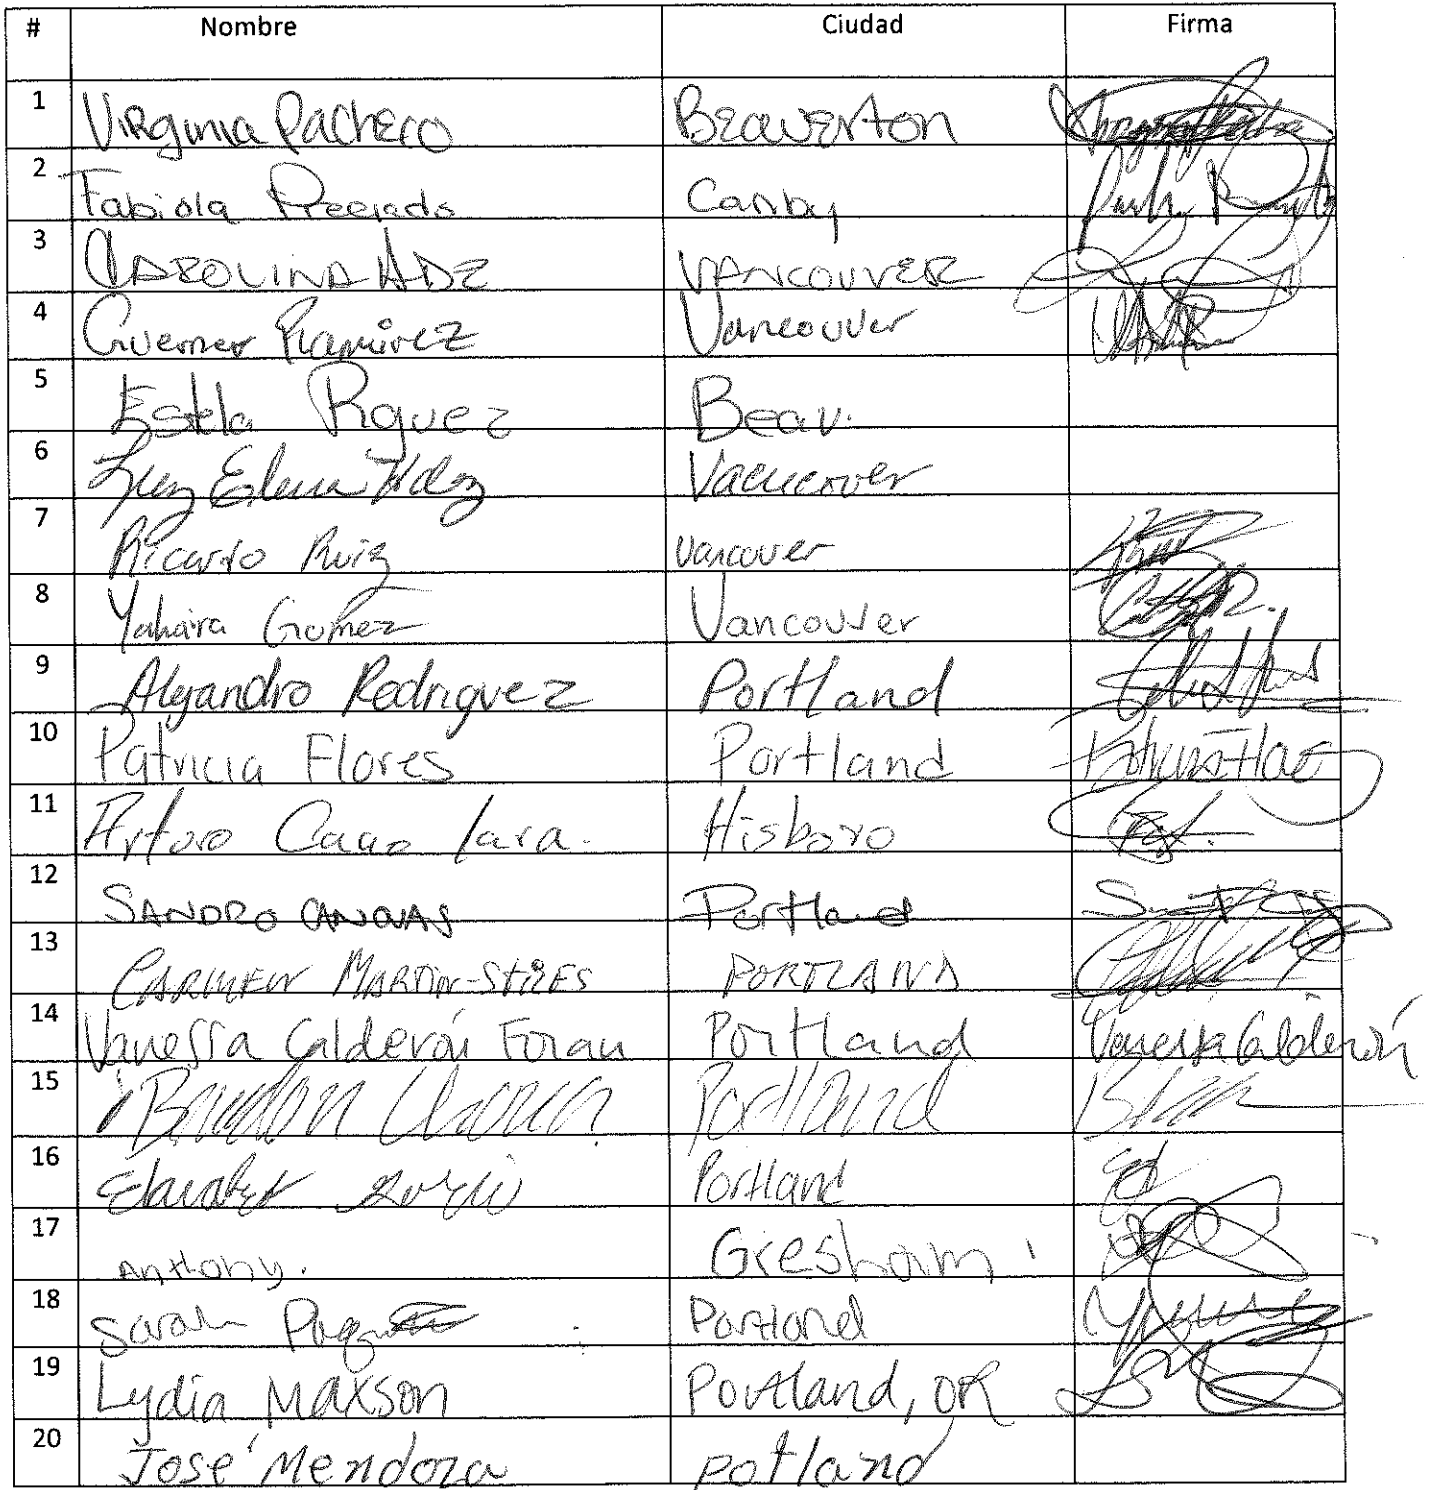 # Nombre Ciudad Firma
1 Virginia Pacheco Beaverton
2 Fabiola Preciado Canby
3 CAROLINA HDZ VANCOUVER
4 Guerner Ramirez Vancouver
5 Estela Rguez Beav.
6 Luz Elena Hdez Vacucover
7 Ricardo Ruiz Vancouver
8 Yahaira Gomez Vancouver
9 Alejandro Rodriguez Portland
10 Patricia Flores Portland
11 Arturo Cano lara. Hisboro
12 SANDRO CANOVAS Portland
13 CARMEN MARTIN-STILES PORTLAND
14 Vanessa Calderón Foran Portland Vanessa Calderón
15 Brandon Portland
16 Portland
17 Anthony. Gresham.
18 Sarah Portland
19 Lydia Maxson Portland, OR
20 José Mendoza potland